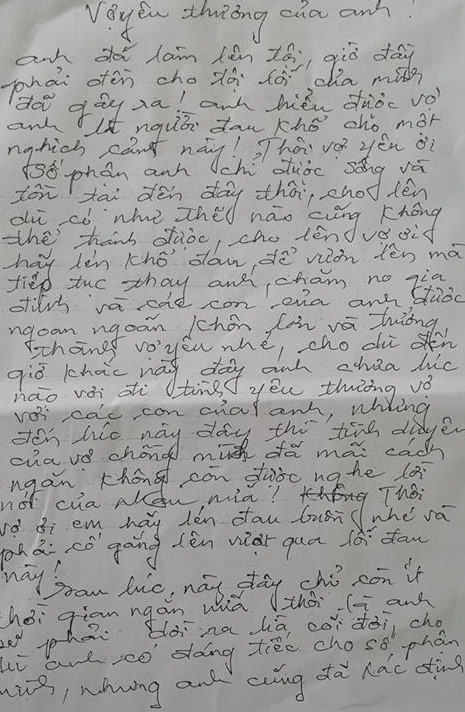 Vợ yêu thương của anh!
anh đã làm lên tội, giờ đây
phải đền cho tội lỗi của mình
đã gây ra! anh hiểu được vợ
anh là người đau khổ cho một
nghịch cảnh này! Thôi vợ yêu ơi
số phận anh chỉ được sống và
tồn tại đến đây thôi, cho lên
dù có như thế nào cũng không
thể tránh được, cho lên vợ ơi
hãy lén khổ đau, để vươn lên mà
tiếp tục thay anh, chăm no gia
đình và các con của anh được
ngoan ngoãn khôn lớn và trưởng
thành vợ yêu nhé, cho dù đến
giờ khắc này đây anh chưa lúc
nào vơi đi tình yêu thương vợ
với các con của anh, nhưng
đến lúc này đây thì tình duyên
của vợ chồng mình đã mãi cách
ngăn không còn được nghe lời
nói của nhau nữa! Thôi
vợ ơi em hãy lén đau buồn nhé và
phải cố gắng lên vượt qua lỗi đau
này!
sau lúc này đây chỉ còn ít
thời gian ngắn nữa thôi là anh
sẽ phải dời ra cõi đời, cho
dù anh có đáng tiếc cho số phận
mình, nhưng anh cũng đã xác định